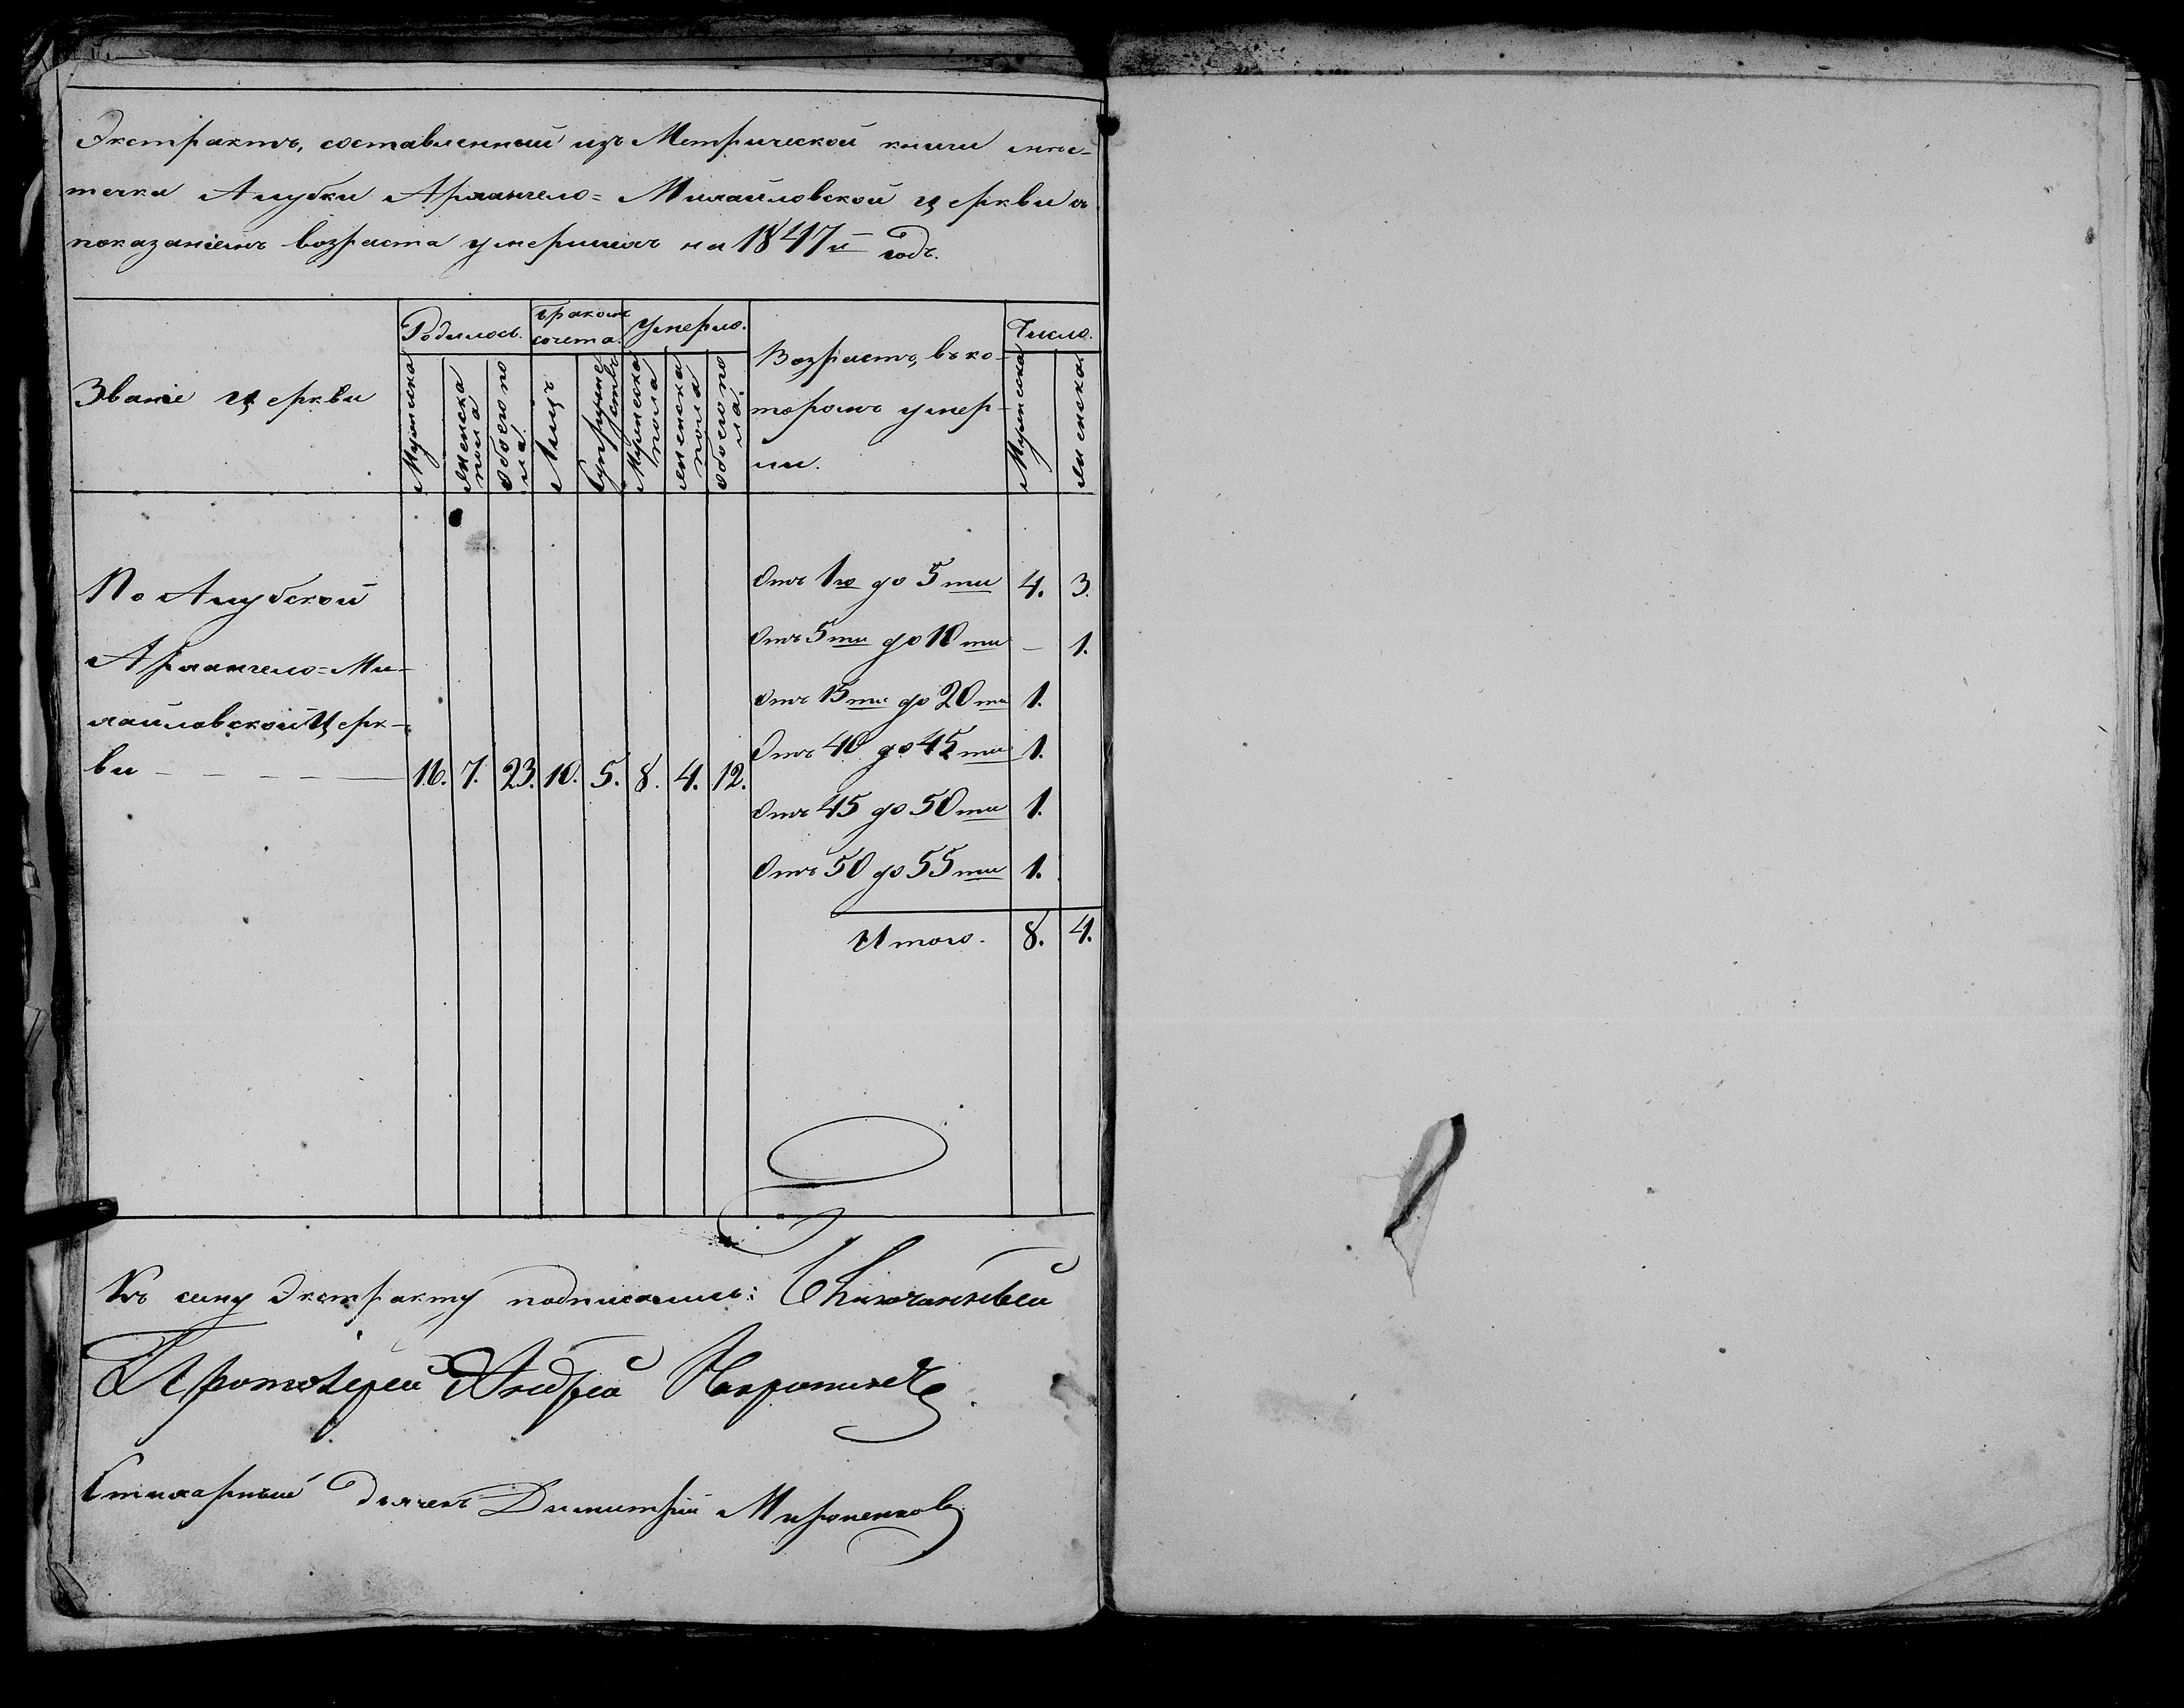 Экстрактъ, составленный изъ Метрической книги мѣс-
течка Алубки Архангело=Михайловской церкви съ
показаніемъ возраста умершихъ на 1847й годъ.
Званіе церкви
Родилось.
Мужеска
женска пола
обоего по ла.
бракомъ сочета.
Лицъ
Супружествъ
Умерло.
Мужеска пола
женска пола
обоего по ла.
Возрастъ, въ ко-
торомъ умер-
ли.
Число.
Мужеска
женска
По Алубской
Архангело=Ми-
хайловской Церк-
ви
16. 7. 23. 10. 5. 8. 4. 12.
Отъ 1го до 5ти 4. 3.
Отъ 5ти до 10ти – 1.
Отъ 15ти до 20ти 1.
Отъ 40 до 45ти 1.
Отъ 45 до 50ти 1.
Отъ 50 до 55ти 1.
Итого. 8. 4.
Къ сему Экстракту подписались:
Протоіерей Андрей
Стихарный дьячекъ Димитрій Мироненков